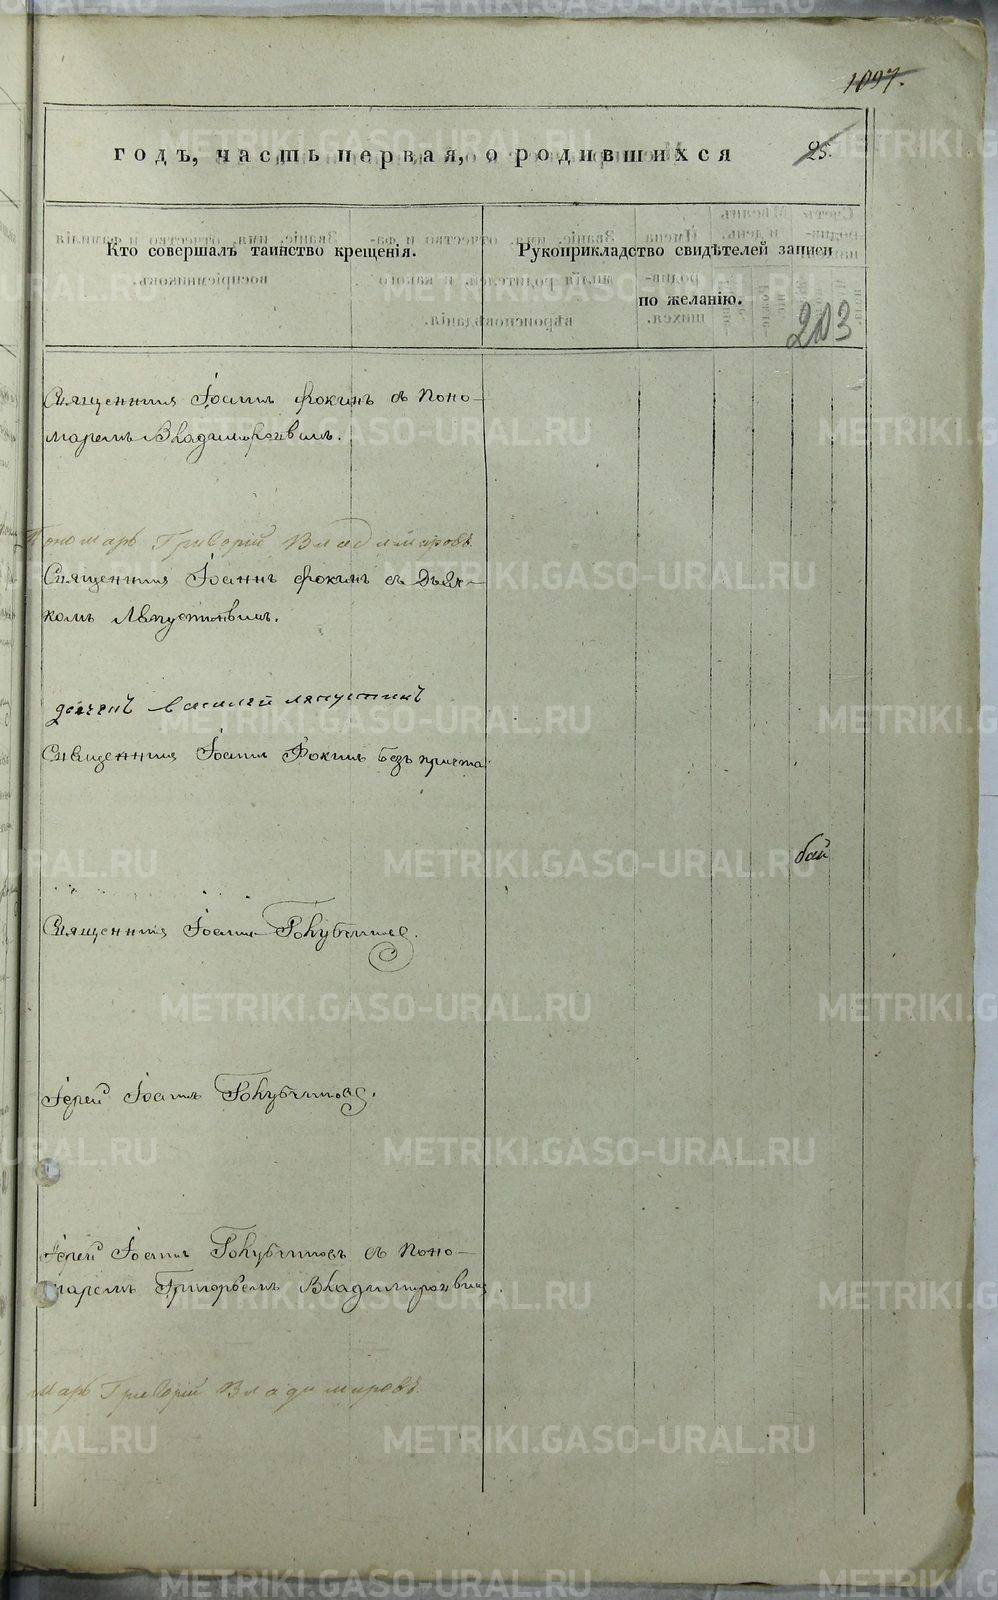 1097.
годъ, часть первая, о родившихся
25.
Кто совершалъ таинство крещенія.
Рукоприкладство свидѣтелей записи
по желанію.
203
Священникъ Іоаннъ Фокинъ съ Поно-
маремъ Владимировымъ.
Пономарь Григорій Владимировъ
Священникъ Іоаннъ Фокинъ съ Дьяч-
комъ Ляпустинымъ.
дьячекъ василей ляпустинъ
Священникъ Іоаннъ Фокинъ безъ причта
Священникъ Іоаннъ Голубчиковъ.
Іерей Іоаннъ Голубчиковъ.
Іерей Іоаннъ Голубчиковъ съ Поно-
маремъ Григорьемъ Владимировымъ.
марь Григорій Владимировъ.
METRIKI.GASO-URAL.RU